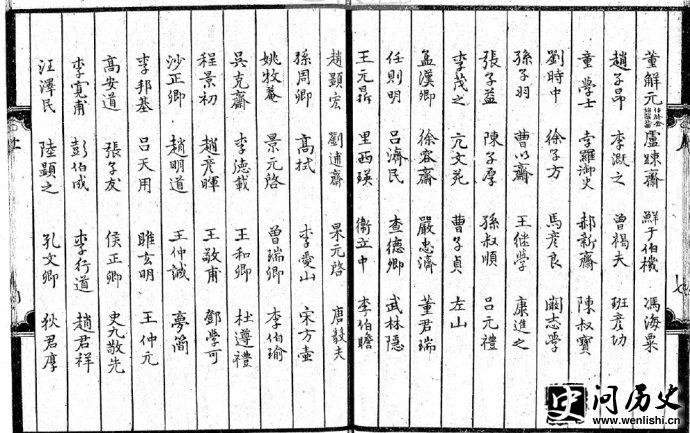 董解元 盧疎齋 鮮于伯機 馮海粟
趙子昂 李溉之 曾褐夫 班彦功
童學士 孛羅御史 郝新齋 陳叔寶
劉時中 徐子方 馬彦良 閻志學
孫子羽 曹以齋 王繼學 康進之
張子益 陳子厚 孫叔順 吕元禮
李茂之 亢文苑 曹子貞 左山
孟漢卿 徐容齋 嚴忠濟 董君瑞
任則明 吕濟民 查德卿 武林隱
王元鼎 里西瑛 衞立中 李伯瞻
趙顯宏 劉逋齋 杲元啓 唐毅夫
孫周卿 高拭 李愛山 宋方壺
姚牧菴 景元啓 曾瑞卿 李伯瑜
吳克齋 李德載 王和卿 杜遵禮
程景初 趙彦暉 王敬甫 鄧學可
沙正卿 趙明道 王仲誠 夢簡
李邦基 吕天用 睢玄明 王仲元
高安道 張子友 侯正卿 史九敬先
李寬甫 彭伯成 李行道 趙君祥
汪澤民 陸顯之 孔文卿 狄君厚
问历史
www.wenlishi.cn